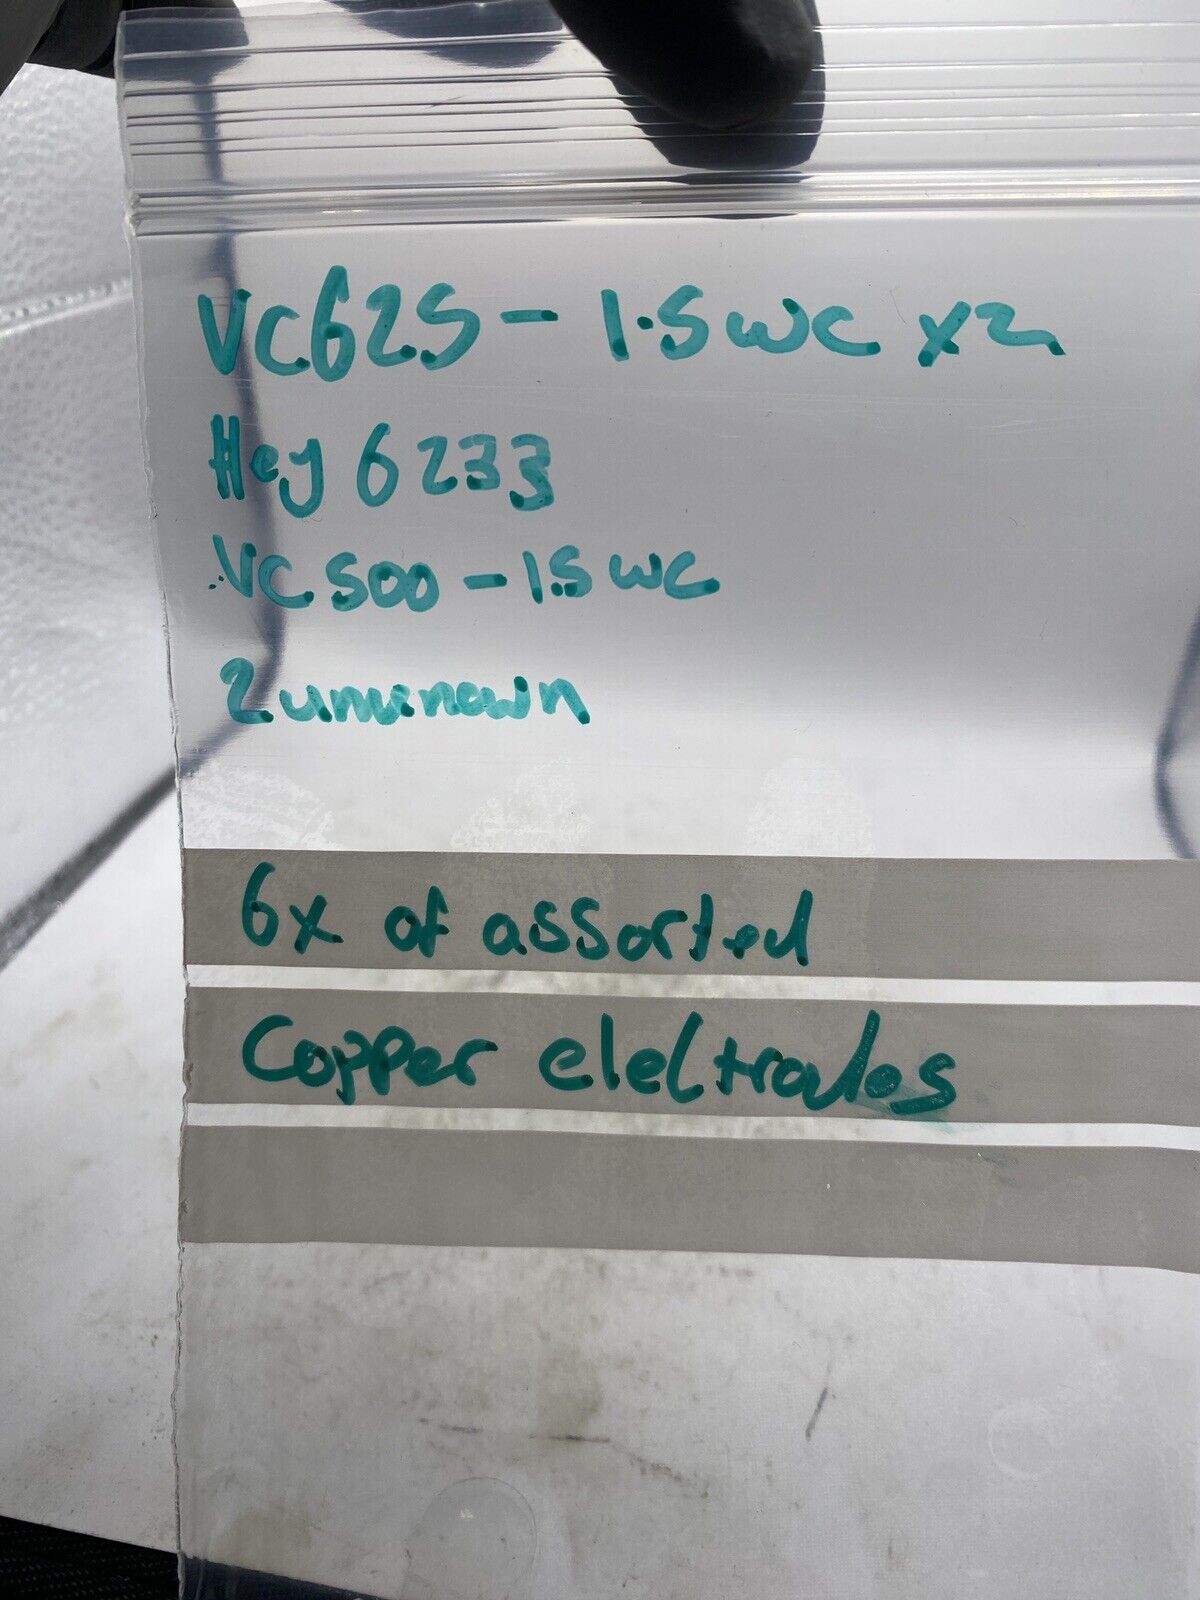 VC625 - 1.5WC x2
Hey 6233
VC500 - 1.5WC
2 unknown
6x of assorted
Copper electrodes